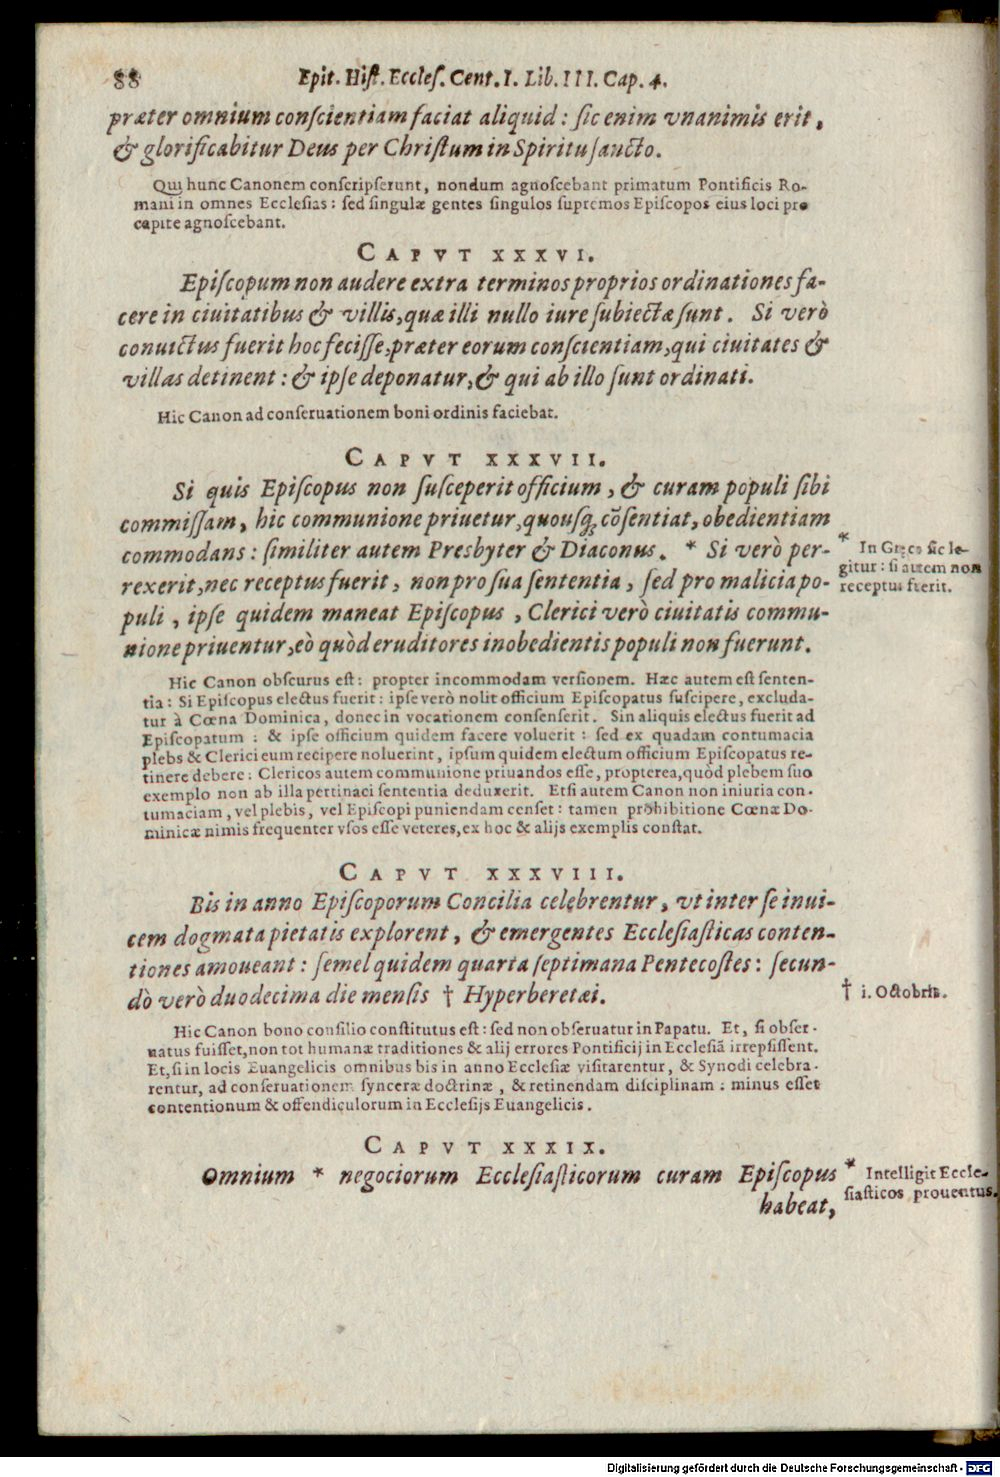 88 Epit. Hiſt. Eccleſ. Cent. I. Lib. III. Cap. 4.
præter omnium conſcientiam faciat aliquid: ſic enim vnanimis erit,
& glorificabitur Deus per Chriſtum in Spiritu ſancto.
Qui hunc Canonem conſcripſerunt, nondum agnoſcebant primatum Pontificis Ro-
mani in omnes Eccleſias: ſed ſingulæ gentes ſingulos ſupremos Epiſcopos eius loci pro
capite agnoſcebant.
CAPVT XXXVI.
Epiſcopum non audere extra terminos proprios ordinationes fa-
cere in ciuitatibus & villis, quæ illi nullo iure ſubiectæ ſunt. Si verò
conuictus fuerit hoc feciſſe, præter eorum conſcientiam, qui ciuitates &
villas detinent: & ipſe deponatur, & qui ab illo ſunt ordinati.
Hic Canon ad conſeruationem boni ordinis faciebat.
CAPVT XXXVII.
Si quis Epiſcopus non ſuſceperit officium, & curam populi ſibi
commiſſam, hic communione priuetur, quouſq; cōſentiat, obedientiam
commodans: ſimiliter autem Presbyter & Diaconus. * Si verò per-
rexerit, nec receptus fuerit, non pro ſua ſententia, ſed pro malicia po-
puli, ipſe quidem maneat Epiſcopus, Clerici verò ciuitatis commu-
nione priuentur, eò quòd eruditores inobedientis populi non fuerunt.
* In Græco ſic le-
gitur: ſi autem non
receptus fuerit.
Hic Canon obſcurus eſt: propter incommodam verſionem. Hæc autem eſt ſenten-
tia: Si Epiſcopus electus fuerit: ipſe verò nolit officium Epiſcopatus ſuſcipere, excluda-
tur à Cœna Dominica, donec in vocationem conſenſerit. Sin aliquis electus fuerit ad
Epiſcopatum: & ipſe officium quidem facere voluerit: ſed ex quadam contumacia
plebs & Clerici eum recipere noluerint, ipſum quidem electum officium Epiſcopatus re-
tinere debere: Clericos autem communione priuandos eſſe, propterea, quòd plebem ſuo
exemplo non ab illa pertinaci ſententia deduxerit. Etſi autem Canon non iniuria con-
tumaciam, vel plebis, vel Epiſcopi puniendam cenſet: tamen prohibitione Cœnæ Do-
minicæ nimis frequenter vſos eſſe veteres, ex hoc & alijs exemplis conſtat.
CAPVT XXXVIII.
Bis in anno Epiſcoporum Concilia celebrentur, vt inter ſe inui-
cem dogmata pietatis explorent, & emergentes Eccleſiaſticas conten-
tiones amoueant: ſemel quidem quarta ſeptimana Pentecoſtes: ſecun-
dò verò duodecima die menſis † Hyperberetæi.
† i. Octobris.
Hic Canon bono conſilio conſtitutus eſt: ſed non obſeruatur in Papatu. Et, ſi obſer-
uatus fuiſſet, non tot humanæ traditiones & alij errores Pontificij in Eccleſiā irrepſiſſent.
Et, ſi in locis Euangelicis omnibus bis in anno Eccleſiæ viſitarentur, & Synodi celebra-
rentur, ad conſeruationem ſynceræ doctrinæ, & retinendam diſciplinam: minus eſſet
contentionum & offendiculorum in Eccleſijs Euangelicis.
CAPVT XXXIX.
Omnium * negociorum Eccleſiaſticorum curam Epiſcopus
habeat,
* Intelligit Eccle-
ſiaſticos prouentus.
Digitalisierung gefördert durch die Deutsche Forschungsgemeinschaft - DFG